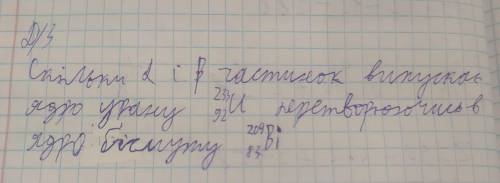 Д/З
Скільки α і β частинок випускає
ядро урану ²³³₉₂U перетворюючись в
ядро бісмуту ²⁰⁹₈₃Bi